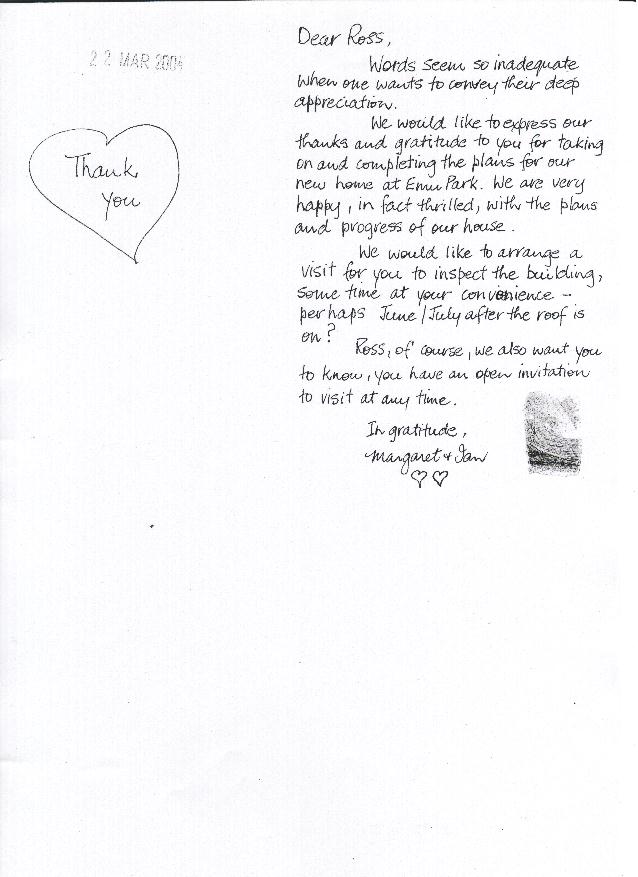 22 MAR 2004
Thank
you
Dear Ross,
Words seem so inadequate
when one wants to convey their deep
appreciation.
We would like to express our
thanks and gratitude to you for taking
on and completing the plans for our
new home at Emu Park. We are very
happy, in fact thrilled, with the plans
and progress of our house.
We would like to arrange a
visit for you to inspect the building,
some time at your convenience –
perhaps June/July after the roof is
on?
Ross, of course, we also want you
to know, you have an open invitation
to visit at any time.
In gratitude,
Margaret & Ian